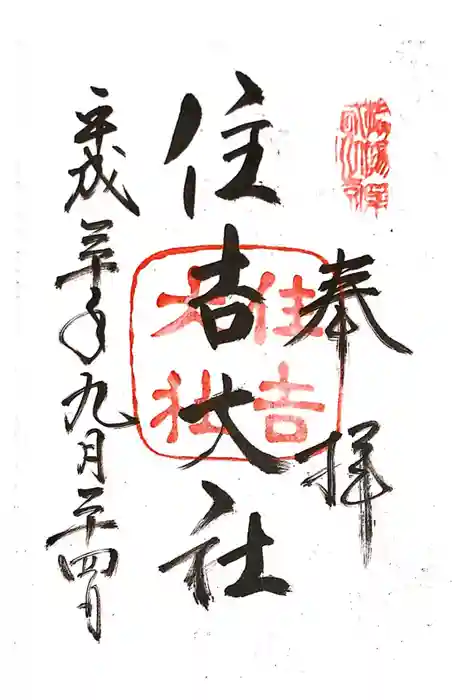 奉拝
住吉大社
住吉
大社
平成三十年九月二十四日